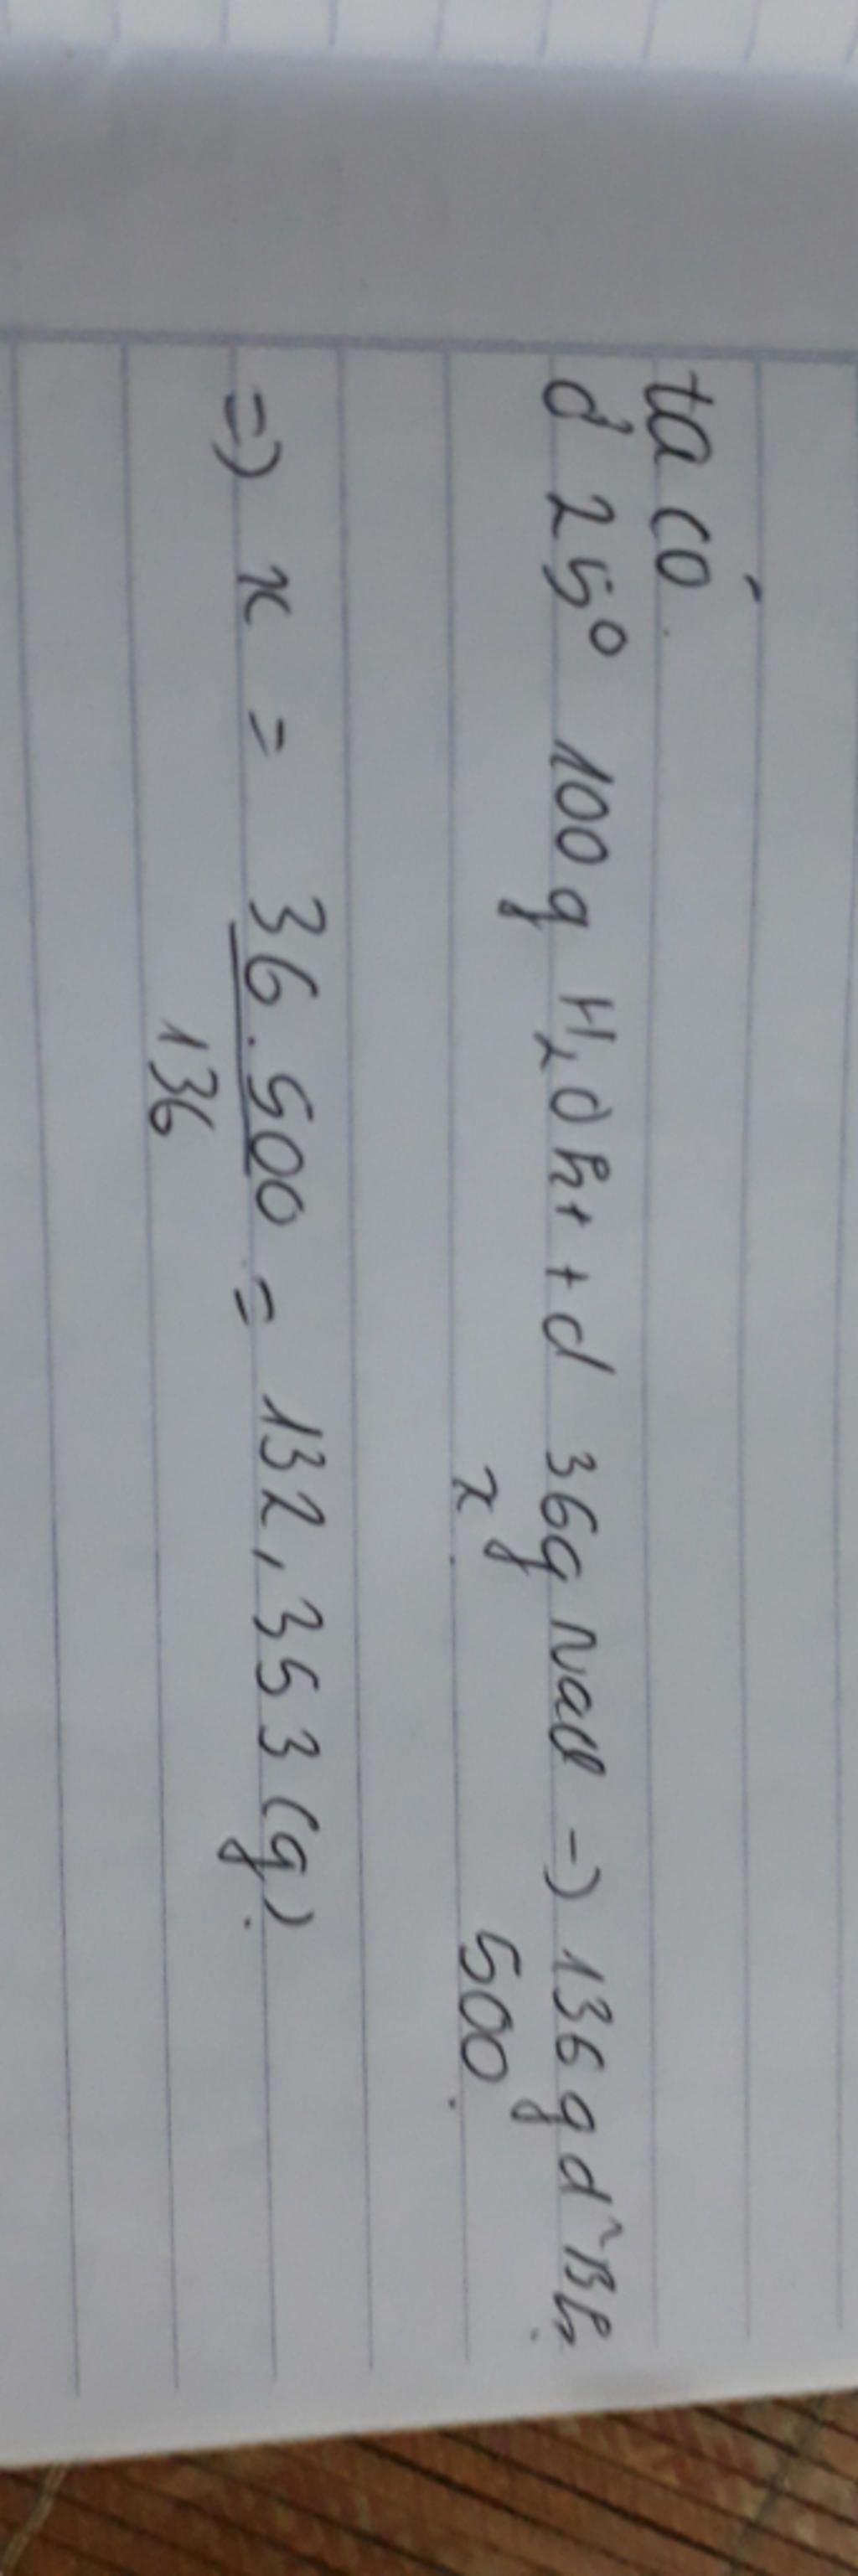 ta có
ở 25° 100g H₂O ht + d 36g NaCl -> 136g d² Bh
x 500
=> x = 36.500 / 136 = 132,353 (g)